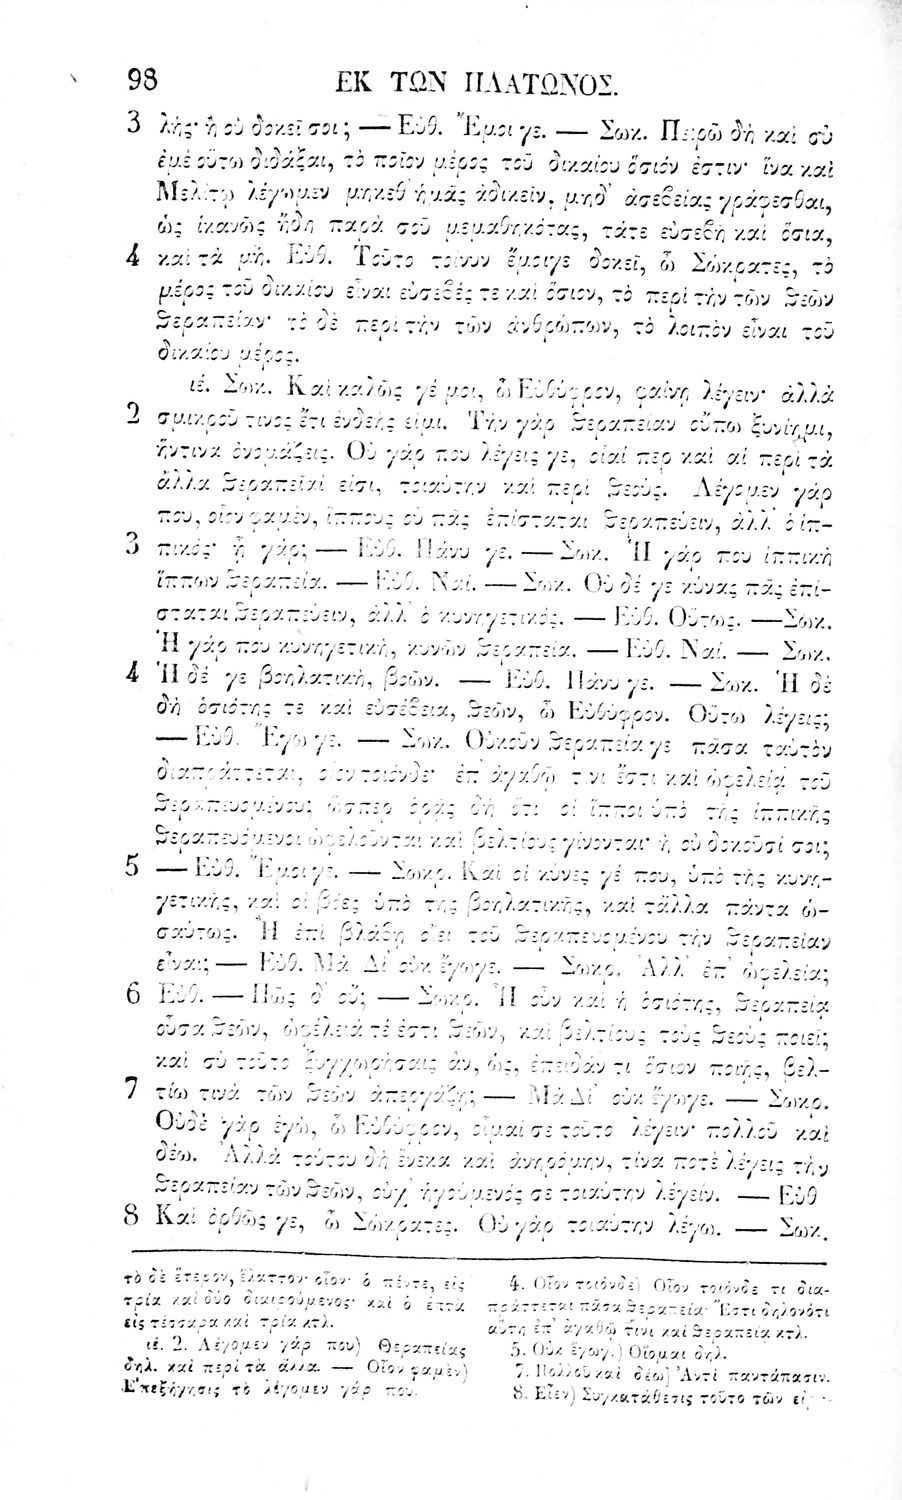 98 ΕΚ ΤΩΝ ΠΛΑΤΩΝΟΣ.
3 λής· ἢ οὐ δοκεῖ σοι; — Εὐθ. Ἔμοι γε. — Σωκ. Πειρῶ δὴ καὶ σὺ
ἐμὲ οὕτω διδάξαι, τὸ ποῖον μέρος τοῦ δικαίου ὅσιόν ἐστιν· ἵνα καὶ
Μελίτῳ λέγωμεν μηκέθ' ἡμᾶς ἀδικεῖν, μηδ' ἀσεβείας γράφεσθαι,
ὡς ἱκανῶς ἤδη παρὰ σοῦ μεμαθηκότας, τάτε εὐσεβῆ καὶ ὅσια,
4 καὶ τὰ μή. Εὐθ. Τοῦτο τοίνυν ἔμοιγε δοκεῖ, ὦ Σώκρατες, τὸ
μέρος τοῦ δικαίου εἶναι εὐσεβές τε καὶ ὅσιον, τὸ περὶ τὴν τῶν θεῶν
θεραπείαν· τὸ δὲ περὶ τὴν τῶν ἀνθρώπων, τὸ λοιπὸν εἶναι τοῦ
δικαίου μέρος.
ιέ. Σωκ. Καὶ καλῶς γέ μοι, ὦ Εὐθύφρον, φαίνῃ λέγειν· ἀλλὰ
2 σμικροῦ τινος ἔτι ἐνδεής εἰμι. Τὴν γὰρ θεραπείαν οὔπω ξυνίημι,
ἥντινα ὀνομάζεις. Οὐ γάρ που λέγεις γε, οἷαί περ καὶ αἱ περὶ τὰ
ἄλλα θεραπεῖαί εἰσι, τοιαύτην καὶ περὶ θεούς. Λέγομεν γάρ
που, οἷον φαμὲν, ἵππους οὐ πᾶς ἐπίσταται θεραπεύειν, ἀλλ' ὁ ἱπ-
3 πικός· ἦ γάρ; — Εὐθ. Πάνυ γε. — Σωκ. Ἡ γάρ που ἱππικὴ
ἵππων θεραπεία. — Εὐθ. Ναί. — Σωκ. Οὐδέ γε κύνας πᾶς ἐπί-
σταται θεραπεύειν, ἀλλ' ὁ κυνηγετικός. — Εὐθ. Οὕτως. — Σωκ.
Ἡ γάρ που κυνηγετικὴ, κυνῶν θεραπεία. — Εὐθ. Ναί. — Σωκ.
4 Ἡ δέ γε βοηλατικὴ, βοῶν. — Εὐθ. Πάνυ γε. — Σωκ. Ἡ δὲ
δὴ ὁσιότης τε καὶ εὐσέβεια, θεῶν, ὦ Εὐθύφρον. Οὕτω λέγεις;
— Εὐθ. Ἔγω γε. — Σωκ. Οὐκοῦν θεραπεία γε πᾶσα ταὐτὸν
διαπράττεται, οἷον τοιόνδε· ἐπ' ἀγαθῷ τινι ἔστι καὶ ὠφελείᾳ τοῦ
θεραπευομένου; ὥσπερ ὁρᾷς δὴ ὅτι οἱ ἵπποι ὑπὸ τῆς ἱππικῆς
θεραπευόμενοι ὠφελοῦνται καὶ βελτίους γίνονται· ἢ οὐ δοκοῦσί σοι;
5 — Εὐθ. Ἔμοιγε. — Σωκρ. Καὶ οἱ κύνες γέ που, ὑπὸ τῆς κυνη-
γετικῆς, καὶ οἱ βόες ὑπὸ τῆς βοηλατικῆς, καὶ τἄλλα πάντα ὡ-
σαύτως. Ἢ ἐπὶ βλάβῃ οἴει τοῦ θεραπευομένου τὴν θεραπείαν
εἶναι; — Εὐθ. Μὰ Δί' οὐκ ἔγωγε. — Σωκρ. Ἀλλ' ἐπ' ὠφελείᾳ;
6 Εὐθ. — Πῶς δ' οὔ; — Σωκρ. Ἦ οὖν καὶ ἡ ὁσιότης, θεραπεία
οὖσα θεῶν, ὠφέλειά τέ ἐστι θεῶν, καὶ βελτίους τοὺς θεοὺς ποιεῖ;
καὶ σὺ τοῦτο ξυγχωρήσαις ἂν, ὡς, ἐπειδάν τι ὅσιον ποιῇς, βελ-
7 τίω τινὰ τῶν θεῶν ἀπεργάζῃ; — Μὰ Δί' οὐκ ἔγωγε. — Σωκρ.
Οὐδὲ γὰρ ἐγὼ, ὦ Εὐθύφρον, οἶμαί σε τοῦτο λέγειν· πολλοῦ καὶ
δέω. Ἀλλὰ τούτου δὴ ἕνεκα καὶ ἀνηρόμην, τίνα ποτὲ λέγεις τὴν
θεραπείαν τῶν θεῶν, οὐχ' ἡγούμενός σε τοιαύτην λέγειν. — Εὐθ
8 Καὶ ὀρθῶς γε, ὦ Σώκρατες. Οὐ γὰρ τοιαύτην λέγω. — Σωκ.
τὸ δὲ ἕτερον, ἔλαττον· οἷον· ὁ πέντε, εἰς
τρία καὶ δύο διαιρούμενος· καὶ ὁ ἑπτὰ
εἰς τέσσαρα καὶ τρία κτλ.
ιέ. 2. Λέγομεν γάρ που) Θεραπείας
δηλ. καὶ περὶ τὰ ἄλλα. — Οἷον φαμὲν)
Ἐπεξήγησις τὸ λέγομεν γάρ που.
4. Οἷον τοιόνδε) Οἷον τοιόνδε τι δια-
πράττεται πᾶσα θεραπεία· Ἔστι δηλονότι
αὕτη ἐπ' ἀγαθῷ τινι καὶ θεραπεία κτλ.
5. Οὐκ ἔγωγ.) Οἴομαι δηλ.
7. Πολλοῦ καὶ δέω] Ἀντὶ παντάπασιν.
8. Εἶεν) Συγκατάθεσις τοῦτο τῶν